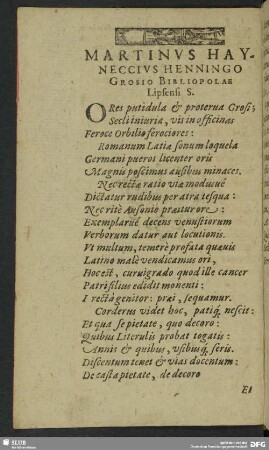 MARTINVS HAY-
NECCIVS HENNINGO
GROSIO BIBLIOPOLAE
Lipsensi S.
O Res putidula & proterua Grosi;
Secli iniuria, vis in officinas
Feroce Orbilio ferociores:
Romanum Latia sonum loquela
Germani pueros licenter oris
Magnis poscimus ausibus minaces.
Nec recta ratio via moduue
Dictatur rudibus per atra tesqua:
Nec rite Ausonio praeitur ore:
Exemplarue decens venustiorum
Verborum datur aut locutionis.
Vt multum, temere profata quauis
Latino male vendicamus ori,
Hoc est, curuigrado quod ille cancer
Patri filius edidit monenti:
I recta genitor: prae i, sequamur.
Corderus videt hoc, patiq́; nescit:
Et qua se pietate, quo decoro:
Quibus Literulis probat togatis:
Annis & quibus, vsibusq́; seris.
Discentum tenet & vias docentum:
De casta pietate, de decoro
Et
SLUB
DFG